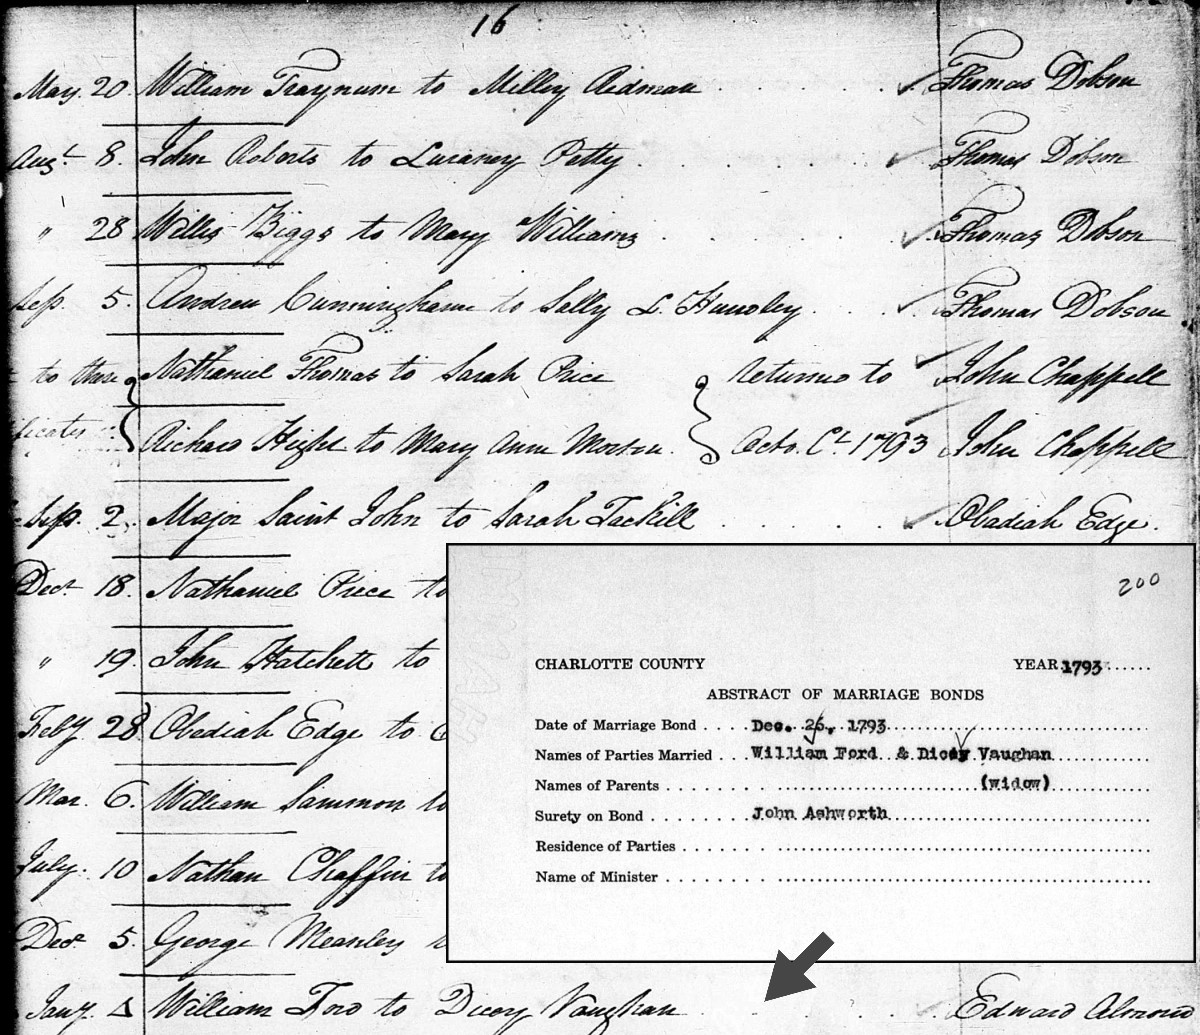 16
May. 20. William Traynum to Milley Redman Thomas Dobson
Augt. 8. John Roberts to Luraney Petty . . . . Thomas Dobson
" 28 Willis Biggs to Mary Williams . . . . Thomas Dobson
Sep. 5. Andrew Cunningham to Sally L. Hundley . . . Thomas Dobson
to these Nathaniel Thomas to Sarah Price returned to John Chappell
ficates Richard Hight to Mary Ann Morton. Octo. Ct. 1793 John Chappell
Sep. 2. Major Saint John to Sarah . . . . Obadiah Edge.
Decr. 18. Nathaniel Price to
" 19. John Hatchett to
Feby. 28 Obediah Edge to
Mar. 6. William Sammon to
July. 10 Nathan Chaffin to
Decr. 5. George Meanley
Jany. William Ford to Dicey Vaughan . . . . Edward Almond
200
CHARLOTTE COUNTY YEAR 1793
ABSTRACT OF MARRIAGE BONDS
Date of Marriage Bond . . . . Dec. 25, 1793
Names of Parties Married . . . William Ford & Dicey Vaughan
Names of Parents . . . . . . . . (widow)
Surety on Bond . . . . . . . . John Ashworth
Residence of Parties . . . . . . . .
Name of Minister . . . . . . . .